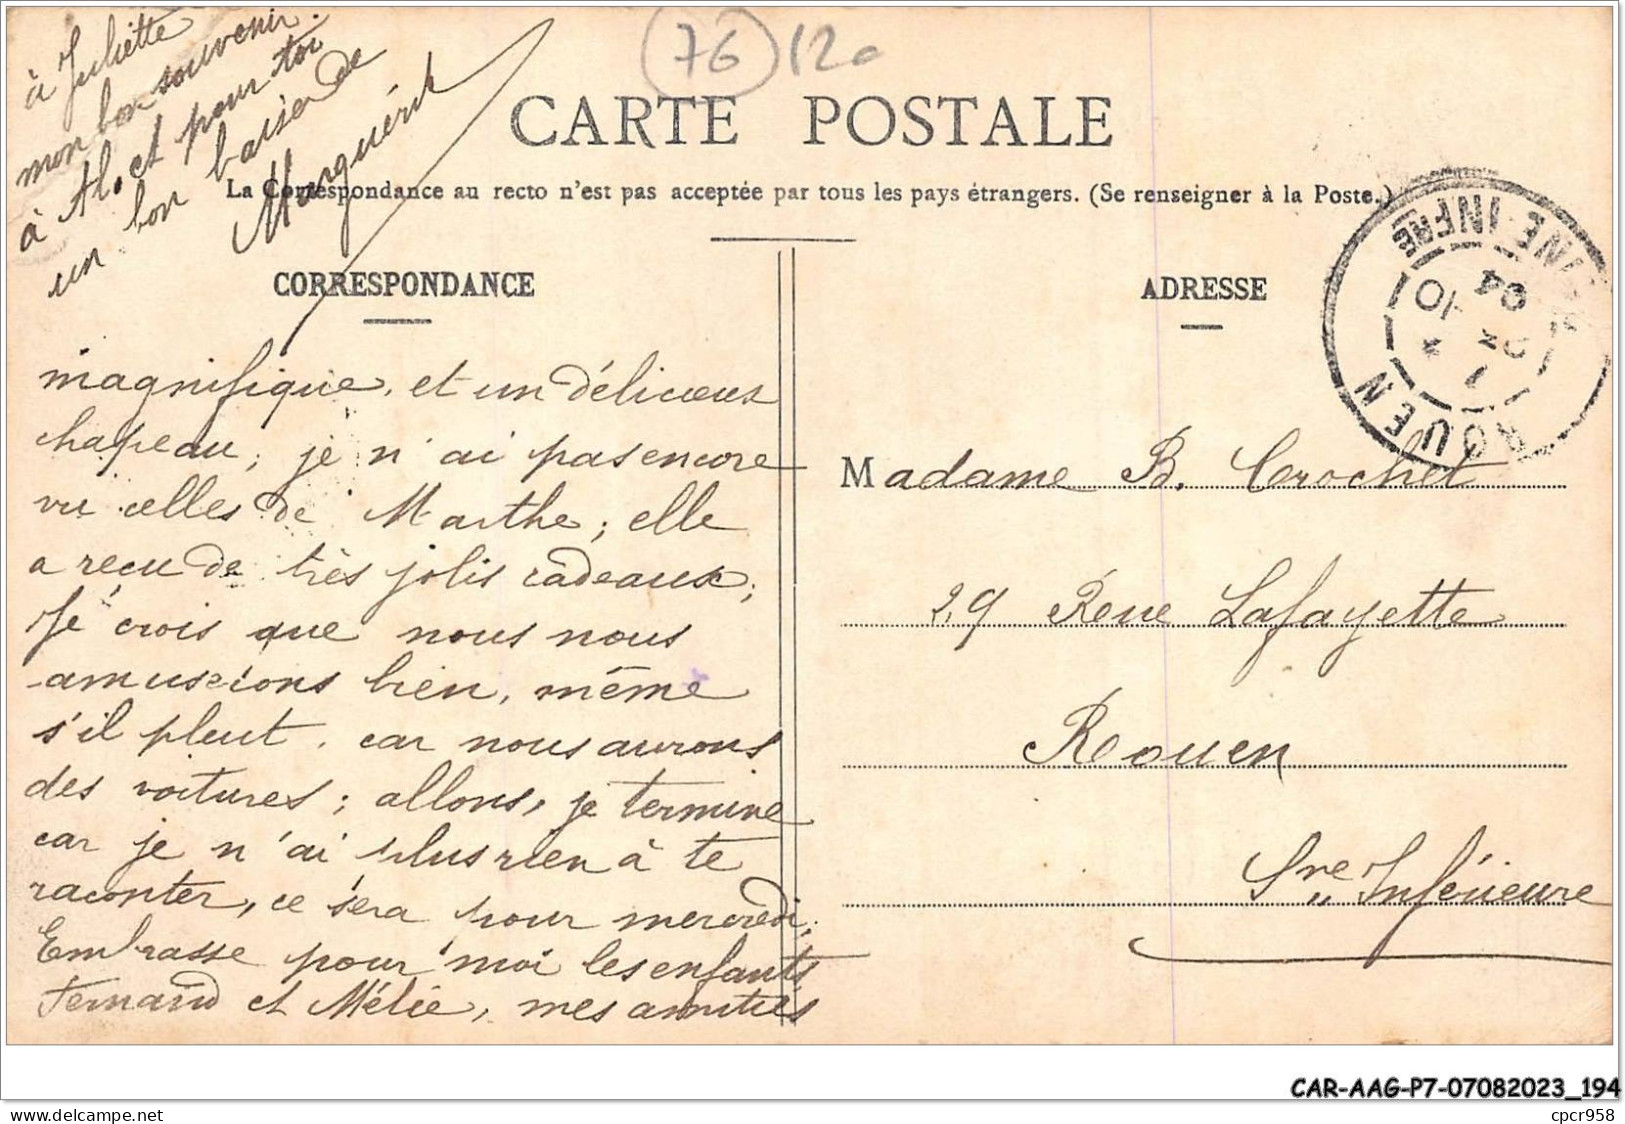 76 12e
à Juliette
mon bon souvenir.
à Al. et pour toi
un bon baiser de
Marguerite
CARTE POSTALE
La Correspondance au recto n'est pas acceptée par tous les pays étrangers. (Se renseigner à la Poste.)
CORRESPONDANCE
ADRESSE
ROUEN
NE-INFRE
04
magnifique, et un délicieux
chapeau; je n'ai pas encore
vu celles de Marthe; elle
a reçu de très jolis cadeaux;
Je crois que nous nous
amuserons bien, même
s'il pleut, car nous aurons
des voitures; allons, je termine
car je n'ai plus rien à te
raconter, ce sera pour mercredi;
Embrasse pour moi les enfants
Fernand et Mélie, mes amitiés
Madame B. Crochet
29 Rue Lafayette
Rouen
Sne Inférieure
CAR-AAG-P7-07082023_194
www.delcampe.net
cpcr958